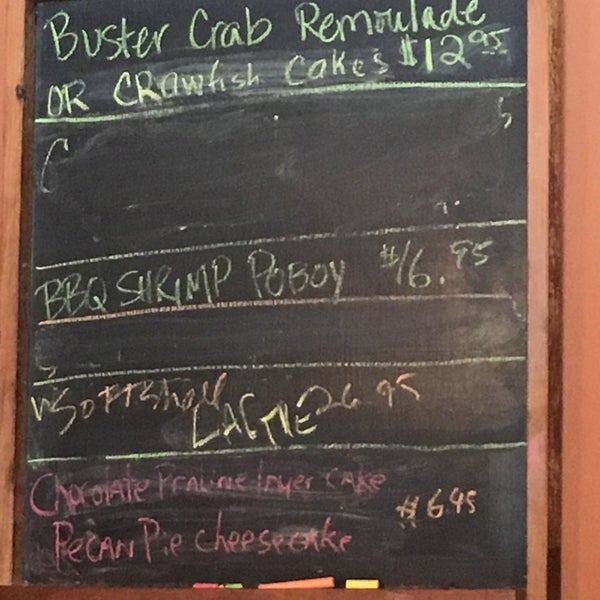 Buster Crab Remoulade
OR CRawfish Cakes $12.95
BBQ SHRIMP POBOY $16.95
SOFTShell 26.95
Chocolate Praline layer cake
Pecan Pie cheesecake $6.95